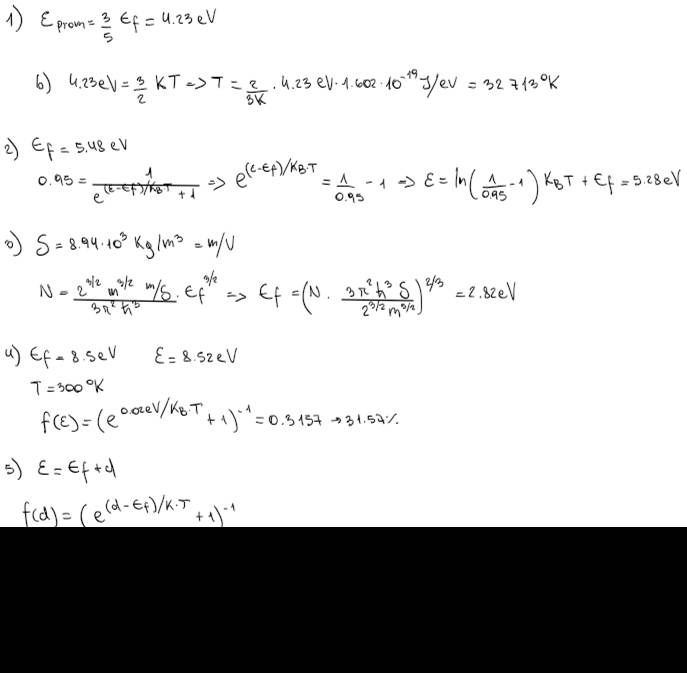 1) ε prom = 3/5 ϵf = 4.23 eV
b) 4.23eV = 3/2 KT => T = 2/3K · 4.23 eV · 1.602·10^-19 J/eV = 32713°K
2) ϵf = 5.48 eV
0.95 = 1/(e^(ε-ϵf)/KBT + 1) => e^(ε-ϵf)/KB·T = 1/0.95 - 1 => ε = ln(1/0.95 - 1) KBT + ϵf = 5.28eV
3) δ = 8.94·10^3 Kg/m^3 = m/V
N = 2^3/2 m^3/2 m/δ / 3π^2 ħ^3 · ϵf^3/2 => ϵf = (N · 3π^2 ħ^3 δ / 2^3/2 m^5/2)^2/3 = 2.82eV
4) ϵf = 8.5eV ε = 8.52eV
T = 300°K
f(ε) = (e^0.02eV/KB·T + 1)^-1 = 0.3157 → 31.57%
5) ε = ϵf + d
f(d) = (e^(d-ϵf)/K·T + 1)^-1